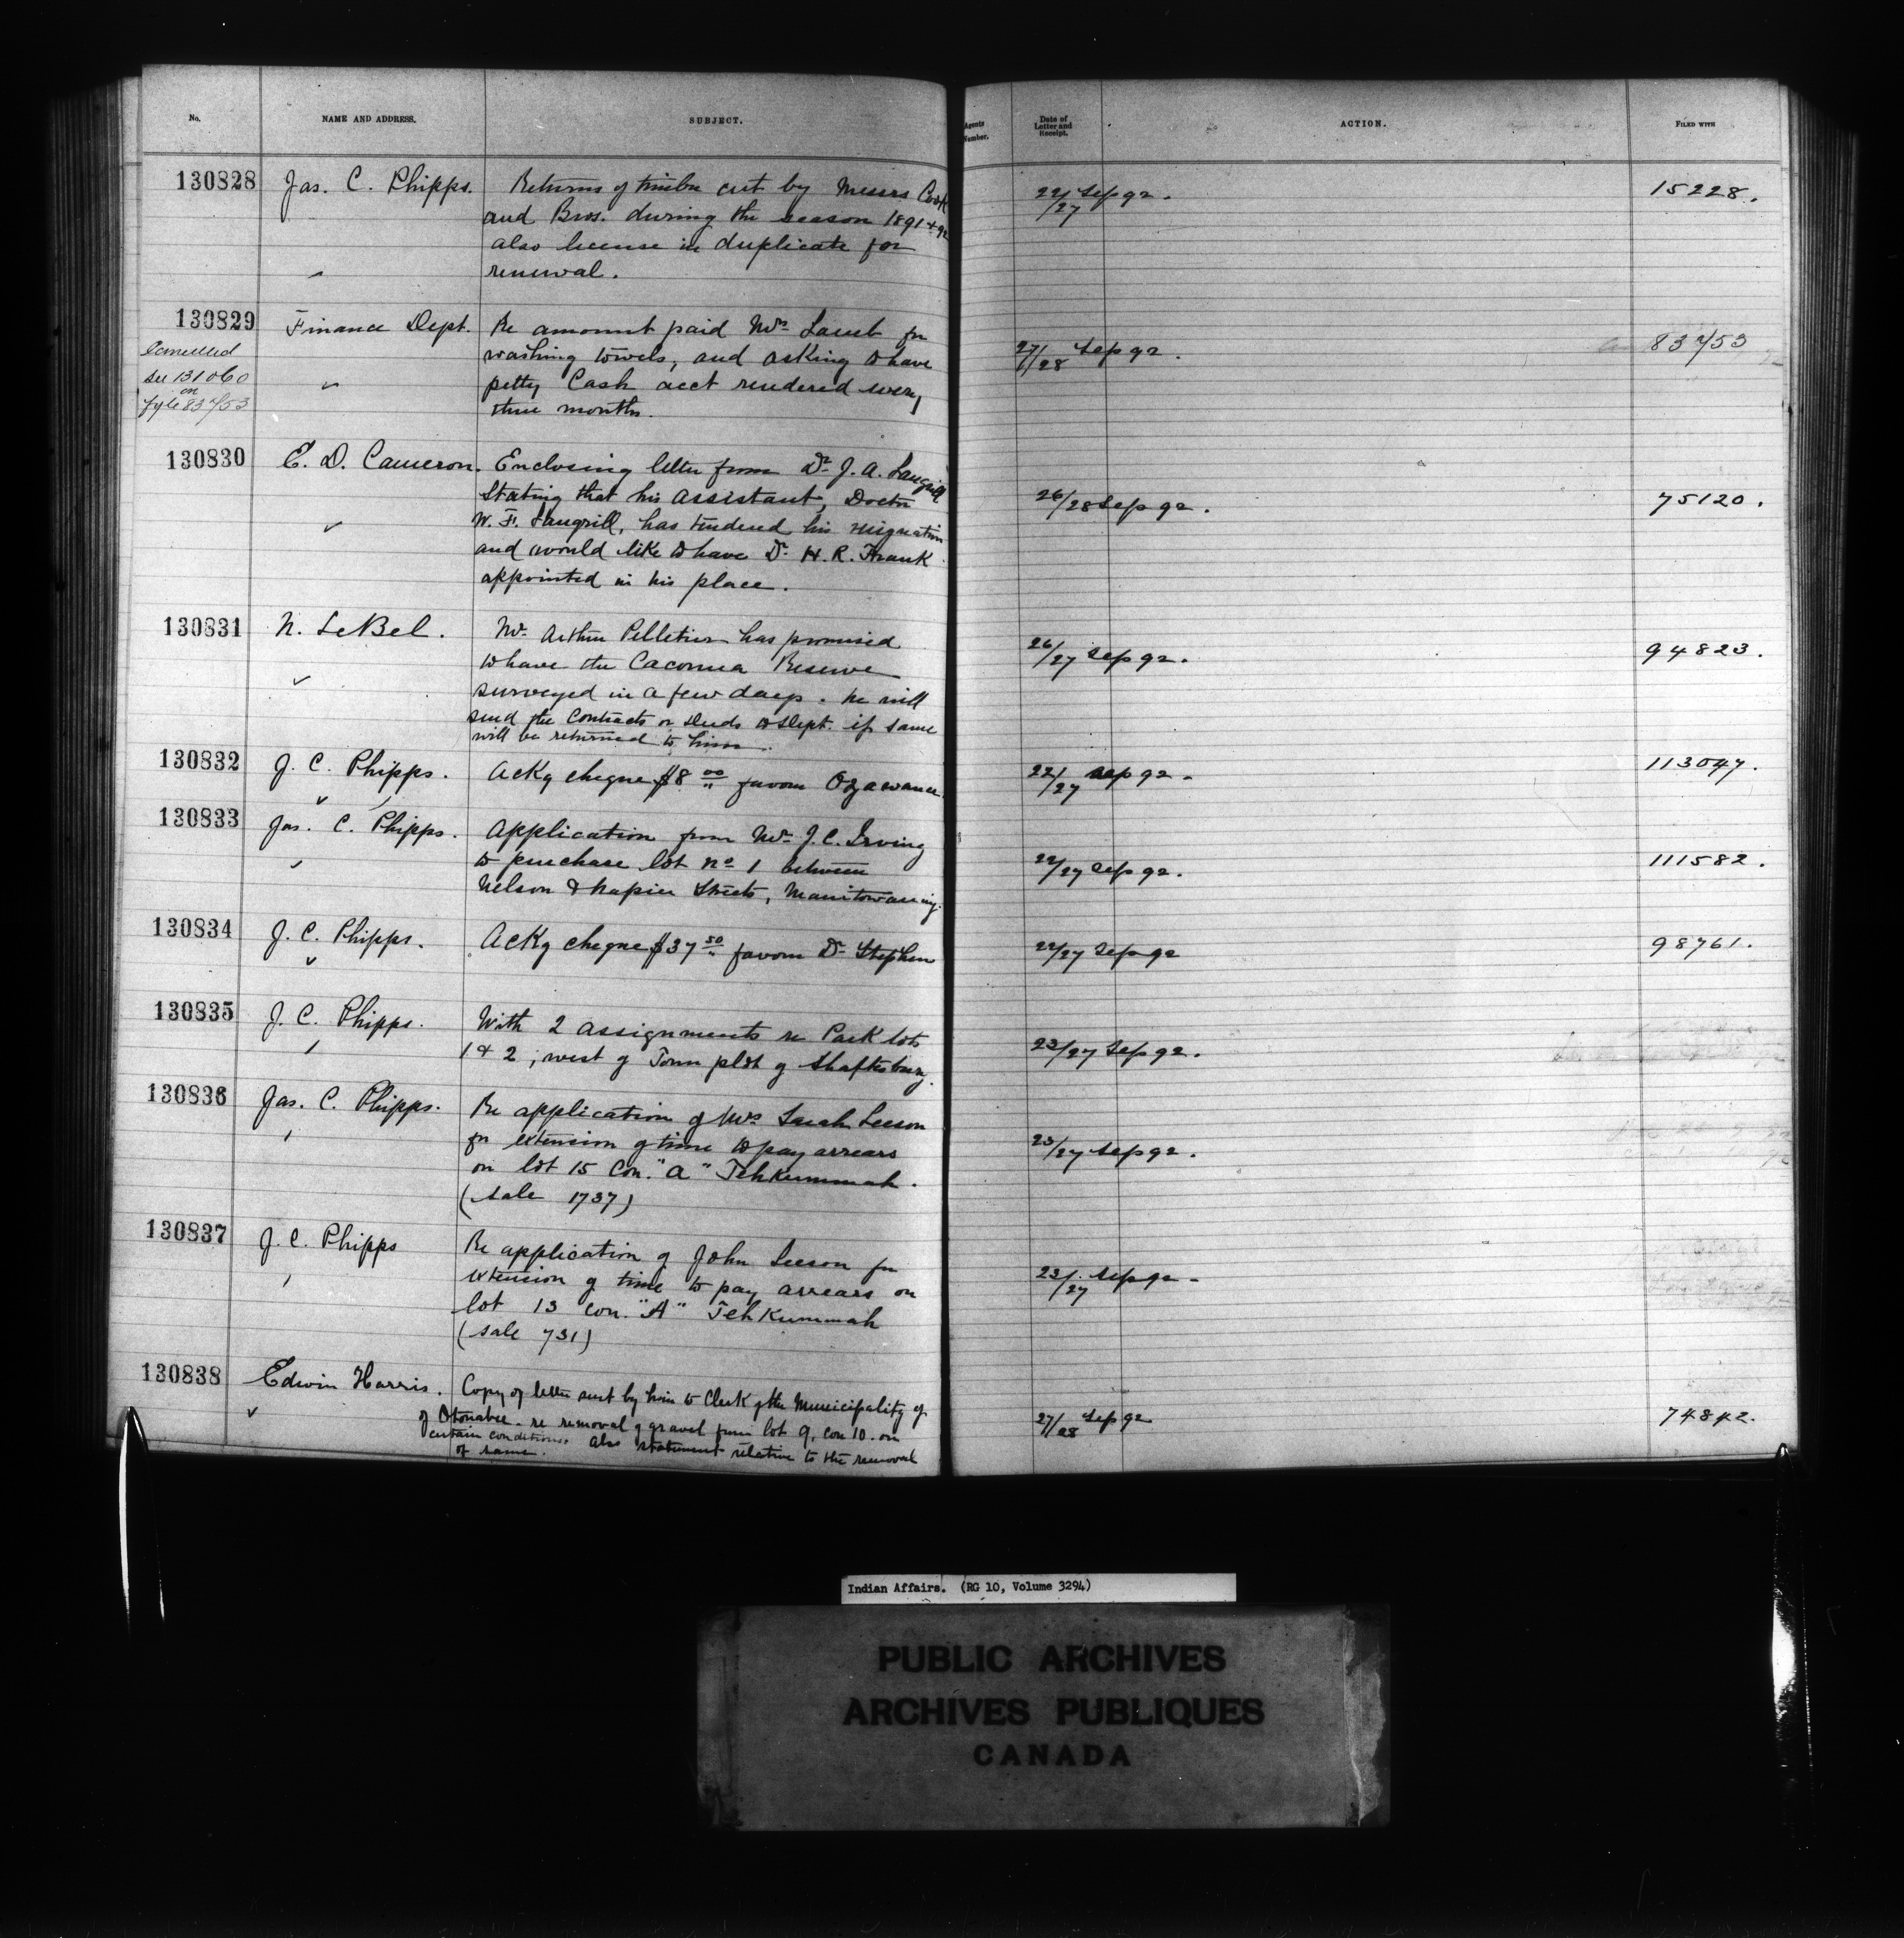 No. NAME AND ADDRESS. SUBJECT. Agents Number. Date of Letter and Receipt. ACTION. FILED WITH
130828 Jas. C. Phipps. Returns of timber cut by Messrs Cook 22/27 Sep 92. 15228.
and Bros. during the season 1891 + 92
also license in duplicate for
renewal.
130829 Finance Dept. Re amount paid Mrs Lamb for 27/28 Sep 92. 83753
Cancelled washing towels, and asking to have
see 131060 petty Cash acct rendered every
on three months.
fyle 83753
130830 E. D. Cameron. Enclosing letter from Dr J. A. Langrill 26/28 Sep 92. 75120.
stating that his assistant, Doctor
W. F. Langrill, has tendered his resignation
and would like to have Dr. H. R. Frank
appointed in his place.
130831 N. LeBel. Mr. Arthur Pelletier has promised 26/27 Sep 92. 94823.
to have the Cacouna Reserve
surveyed in a few days. he will
send the Contracts or deeds to Dept. if same
will be returned to him.
130832 J. C. Phipps. Ackg cheque $8 00 favour Ogawance. 22/27 Sep 92. 113047.
130833 Jas. C. Phipps. Application from Mr. J. C. Irving 22/27 Sep 92. 111582.
to purchase lot no 1 between
Nelson & Napier Streets, Manitowaning.
130834 J. C. Phipps. Ackg cheque $37 50 favour Dr Stephen 22/27 Sep 92 98761.
130835 J. C. Phipps. With 2 assignments re Park lots 23/27 Sep 92.
1 & 2, west of Town plot of Shaftesbury.
130836 Jas. C. Phipps. Re application of Mrs Sarah Leeson 23/27 Sep 92.
for extension of time to pay arrears
on lot 15 Con. "A" Tehkummah.
(sale 1737)
130837 J. C. Phipps Re application of John Leeson for 23/27 Sep 92
extension of time to pay arrears on
lot 13 con. "A" Tehkummah
(sale 731)
130838 Edwin Harris. Copy of letter sent by him to Clerk of the Municipality of 27/28 Sep 92 74842.
of Otonabee. re removal of gravel from lot 9, con 10. on
certain conditions. also statement relative to the removal
of same.
Indian Affairs. (RG 10, Volume 3294)
PUBLIC ARCHIVES
ARCHIVES PUBLIQUES
CANADA